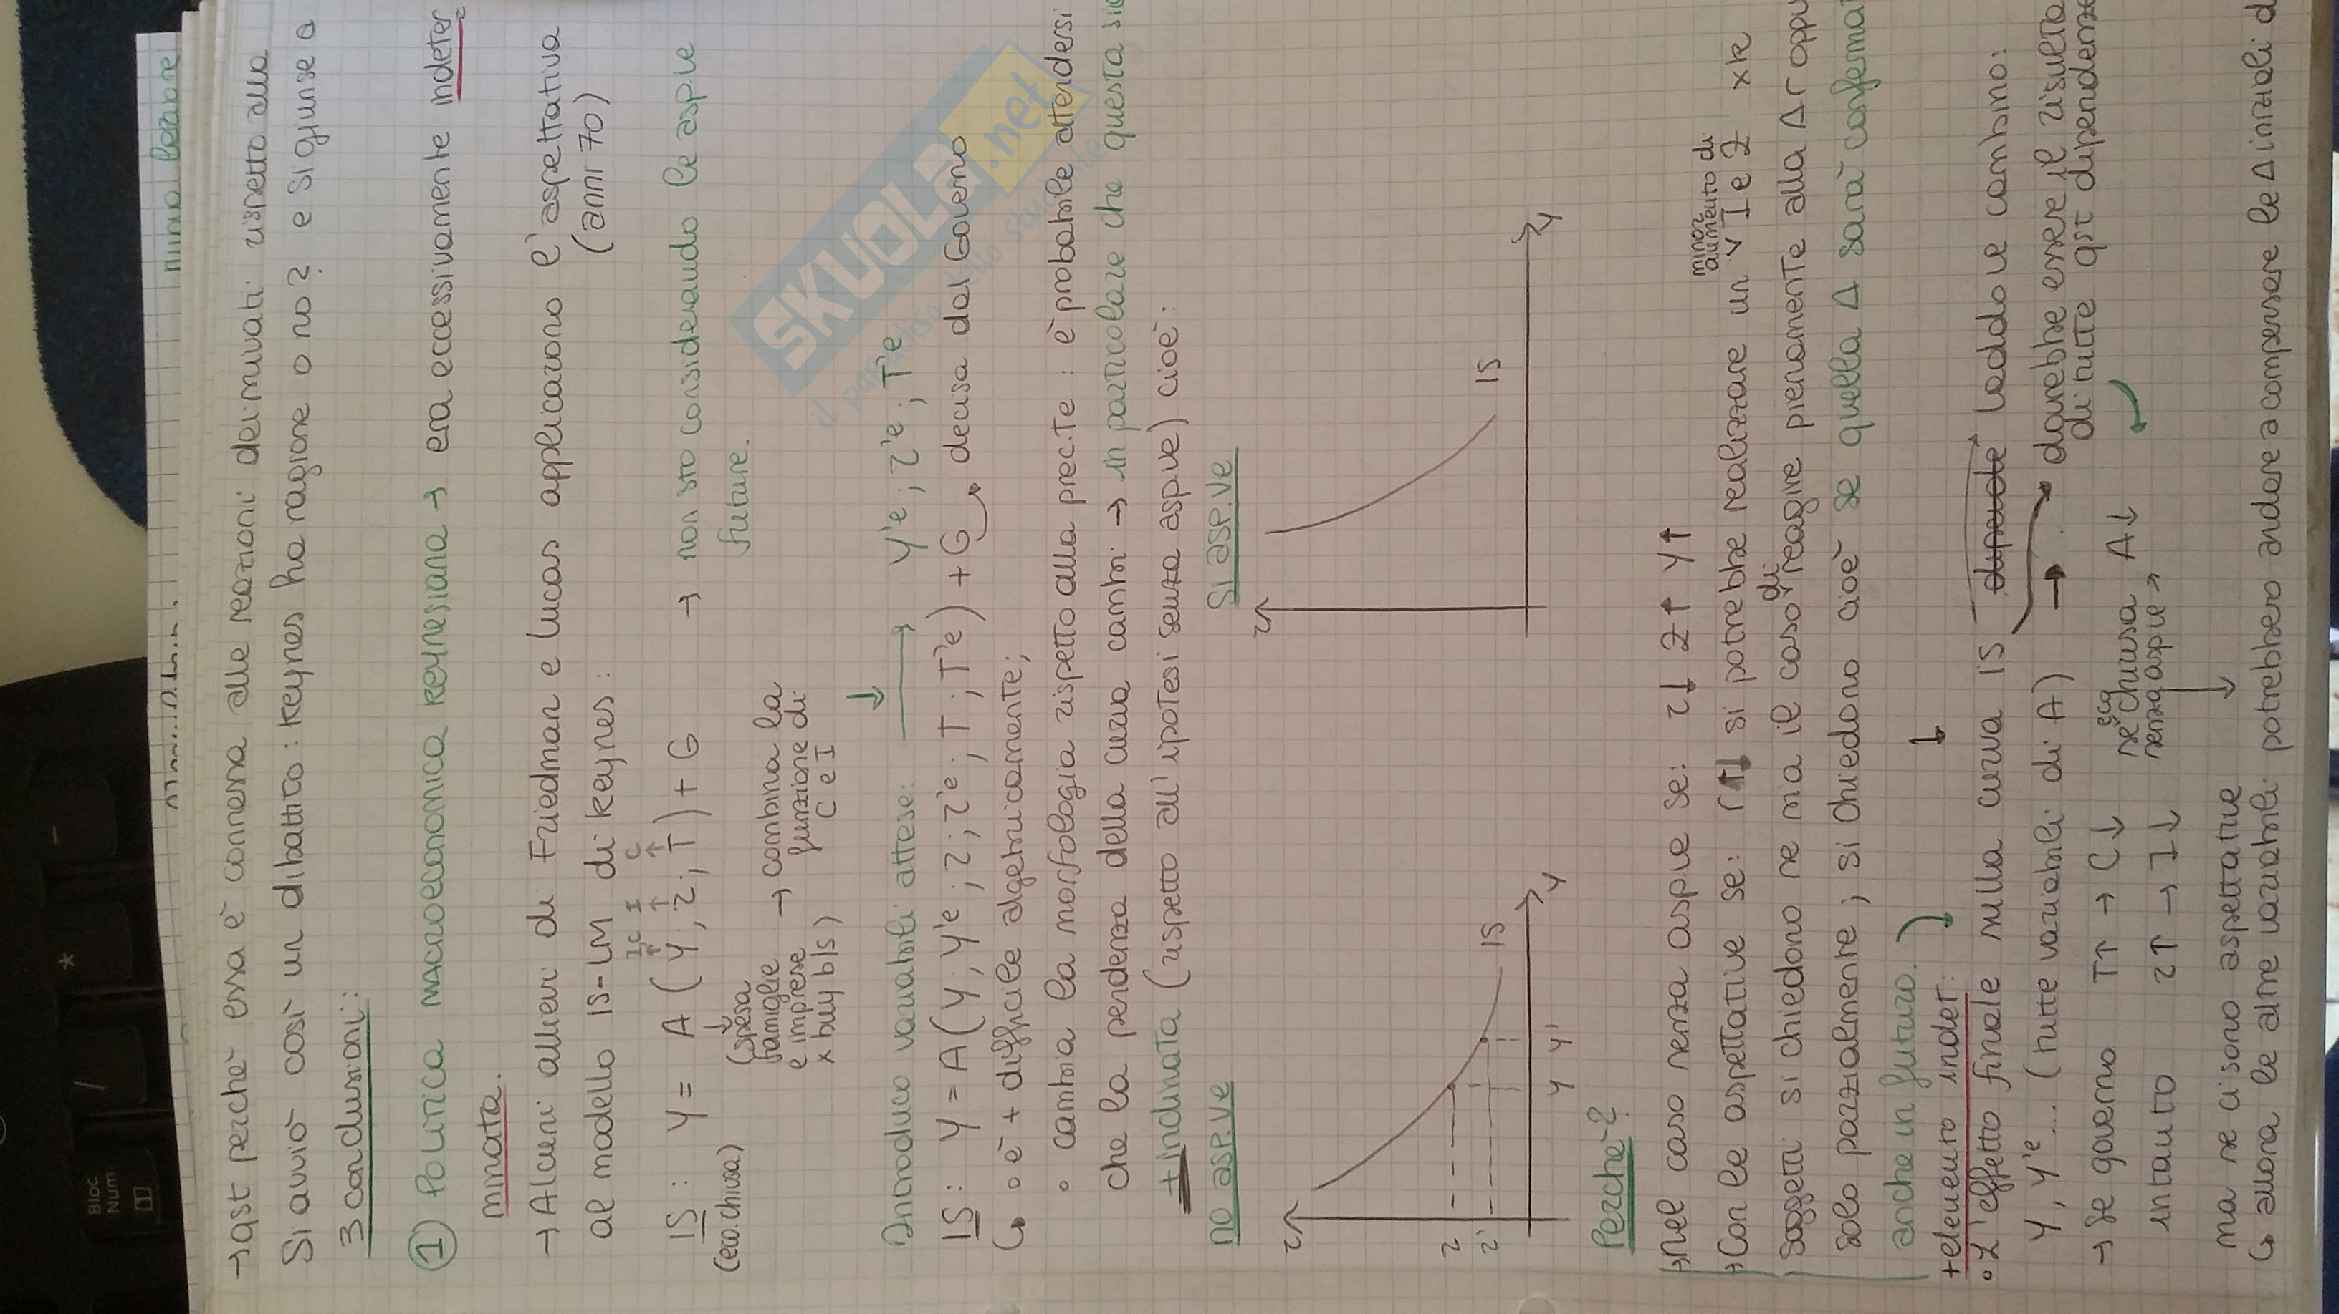 → qst perchè essa è connessa alle reazioni dei privati rispetto alla
Si avviò così un dibattito: Keynes ha ragione o no? e si giunse a
3 conclusioni:
① Politica macroeconomica keynesiana → era eccessivamente indeter
minata.
→ Alcuni allievi di Friedman e Lucas applicarono l'aspettativa
(anni 70)
al modello IS-LM di Keynes:
IS: Y = A (Y, r, T) + G → non sto considerando le asp.ve
future.
(eco. chiusa)
(spesa
famiglie
e imprese
x buy b/s)
→ combina la
funzione di
C e I
Introduco variabili attese: → Y'e; r'e; T'e
IS: Y = A (Y; Y'e; r; r'e; T; T'e) + G → decisa dal Governo
↳ • è + difficile algebricamente;
• cambia la morfologia rispetto alla prec.te: è probabile attendersi
che la pendenza della curva cambi → in particolare che questa sia
+ inclinata (rispetto all'ipotesi senza asp.ve) cioè:
NO ASP.VE
SI ASP.VE
r
r
r'
IS
Y Y'
Y
r
IS
Y
Perchè?
→ Nel caso senza asp.ve se: r↓ I↑ Y↑
minor
aumento di
→ Con le aspettative se: r↓ si potrebbe realizzare un √ I e Y xk
soggetti si chiedono se sia il caso di reagire pienamente alla Δr oppu
solo parzialmente; si chiedono cioè se quella Δ sarà confermat
anche in futuro.
+ elemento indet:
• L'effetto finale sulla curva IS laddove cambino:
Y, Y'e ... (tutte variabili di A) → dovrebbe essere il risulta
di tutte qst dipendenze
→ se governo T↑ → C↓
se eco chiusa A↓
senza asp.ve
intanto r↑ → I↓
ma se ci sono aspettative
↳ allora le altre variabili potrebbero andare a compensare le Δ iniziali d
SKUOLA.net
Bloc
Num
/
*
-